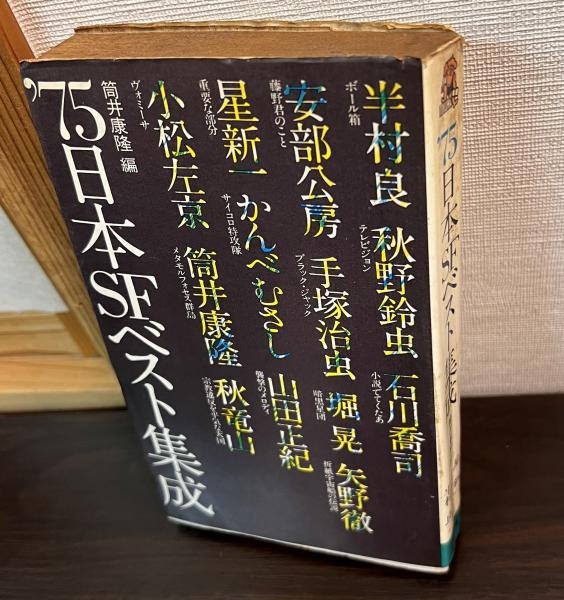 半村良
ボール箱
秋野鈴虫
テレビジョン
石川喬司
小説でてくたあ
安部公房
藤野君のこと
手塚治虫
ブラック・ジャック
堀晃
暗黒星団
矢野徹
折紙宇宙船の伝説
星新一
重要な部分
かんべむさし
サイコロ特攻隊
山田正紀
襲撃のメロディ
小松左京
ヴォミーサ
筒井康隆
メタモルフォセス群島
秋竜山
宗教違反を平気な天国
筒井康隆 編
'75日本SFベスト集成
'75日本SFベスト集成